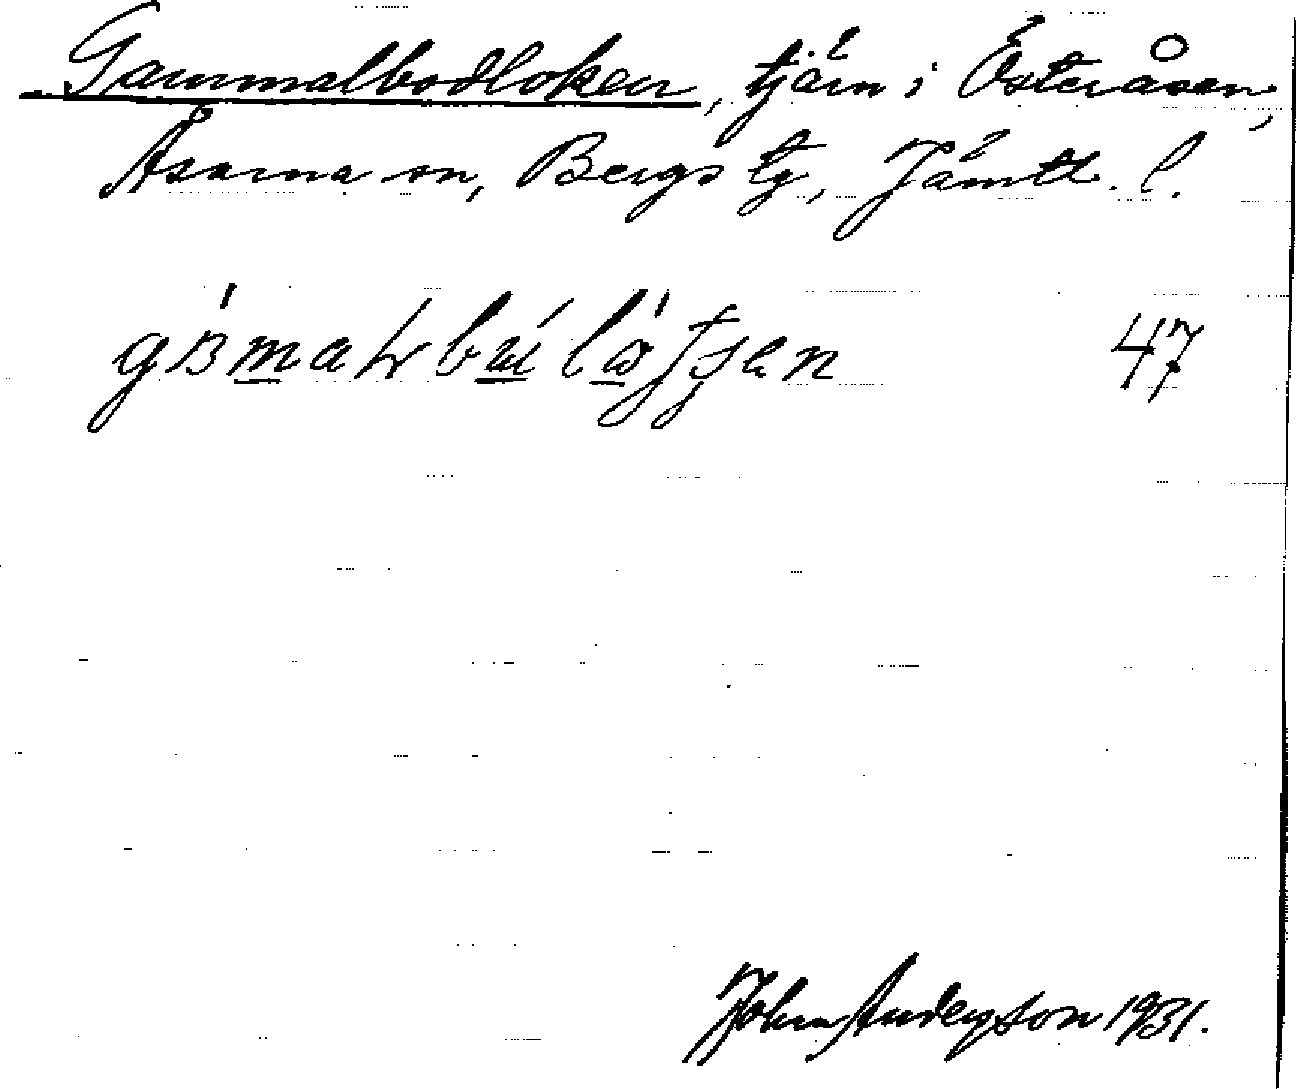 Gammalbodloken, tjärn i Österåsen,
Åsarna sn, Bergs tg, Jämtl. l.
47
John Anderson 1931.